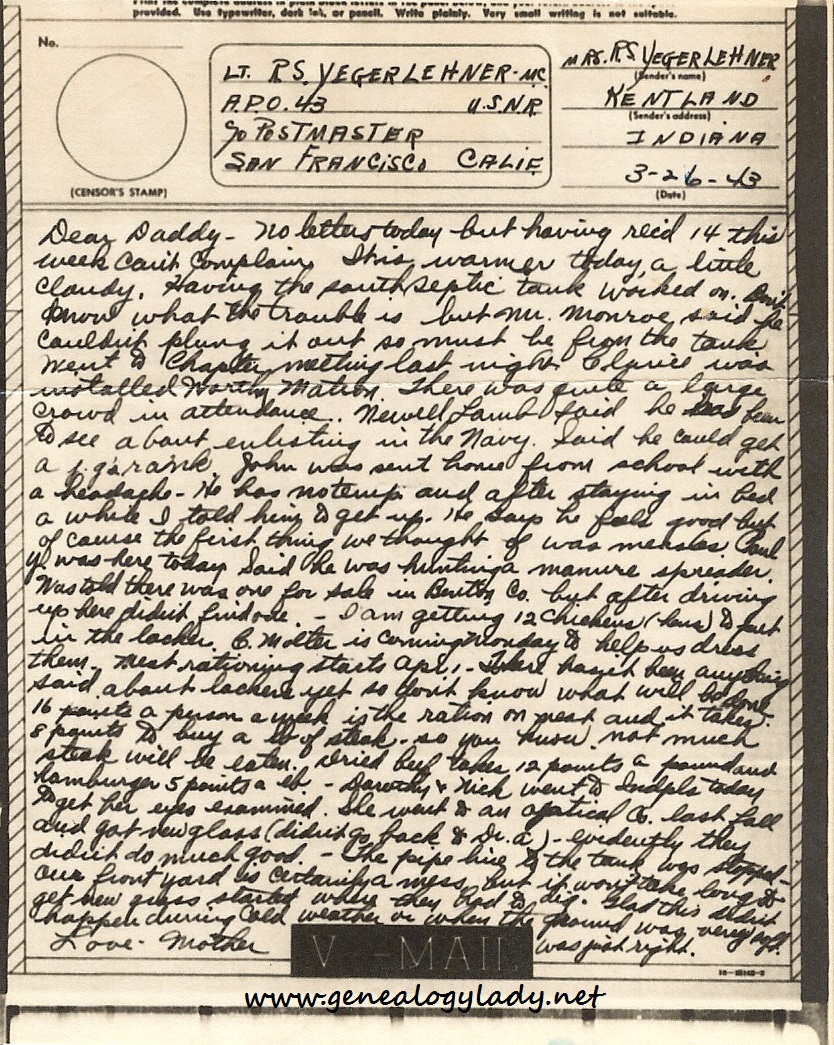 Print the complete address in plain block letters in the panel below, and your return address in the space
provided. Use typewriter, dark ink, or pencil. Write plainly. Very small writing is not suitable.
No.
(CENSOR'S STAMP)
LT. R.S. YEGERLEHNER-MC
A.P.O. 43 U.S.N.R
c/o POSTMASTER
SAN FRANCISCO CALIF.
MRS. R.S. YEGERLEHNER
(Sender's name)
KENTLAND
(Sender's address)
INDIANA
3-26-43
(Date)
Dear Daddy - No letters today but having rec'd 14 this
week can't complain. It is warmer today, a little
cloudy. Having the south septic tank worked on. Don't
know what the trouble is but Mr. Monroe said he
couldn't plung it out so must be from the tank
Went to Chapter meeting last night. Clarice was
installed Worthy Matron. There was quite a large
crowd in attendance. Newell Lamb said he has been
to see about enlisting in the Navy. Said he could get
a j.g.'s rank. John was sent home from school with
a headache - He has no temp. and after staying in bed
a while I told him to get up. He says he feels good but
of course the first thing we thought of was measles. Paul
Y. was here today said he was hunting a manure spreader.
Was told there was one for sale in Benton Co. but after driving
up here didn't find one. - I am getting 12 chickens (hens) to put
in the locker. C. Molter is coming Monday to help us dress
them. Meat rationing starts Apr. 1 - There hasn't been anything
said about lockers yet so don't know what will be done.
16 points a person a week is the ration on meat and it takes
8 points to buy a lb of steak - so you know not much
steak will be eaten. Dried beef takes 12 points a pound and
hamburger 5 points a lb. - Dorothy & Nick went to Indpls today
to get her eyes examined. She went to an optical Co. last fall
and got new glass (didn't go back to Dr. A) - evidently they
didn't do much good. - The pipe line to the tank was stopped -
our front yard is certainly a mess, but it won't take long to
get new grass started where they had to dig. Glad this didn't
happen during cold weather or when the ground was very soft.
Love - Mother was just right.
V-MAIL
16-28143-3
www.genealogylady.net